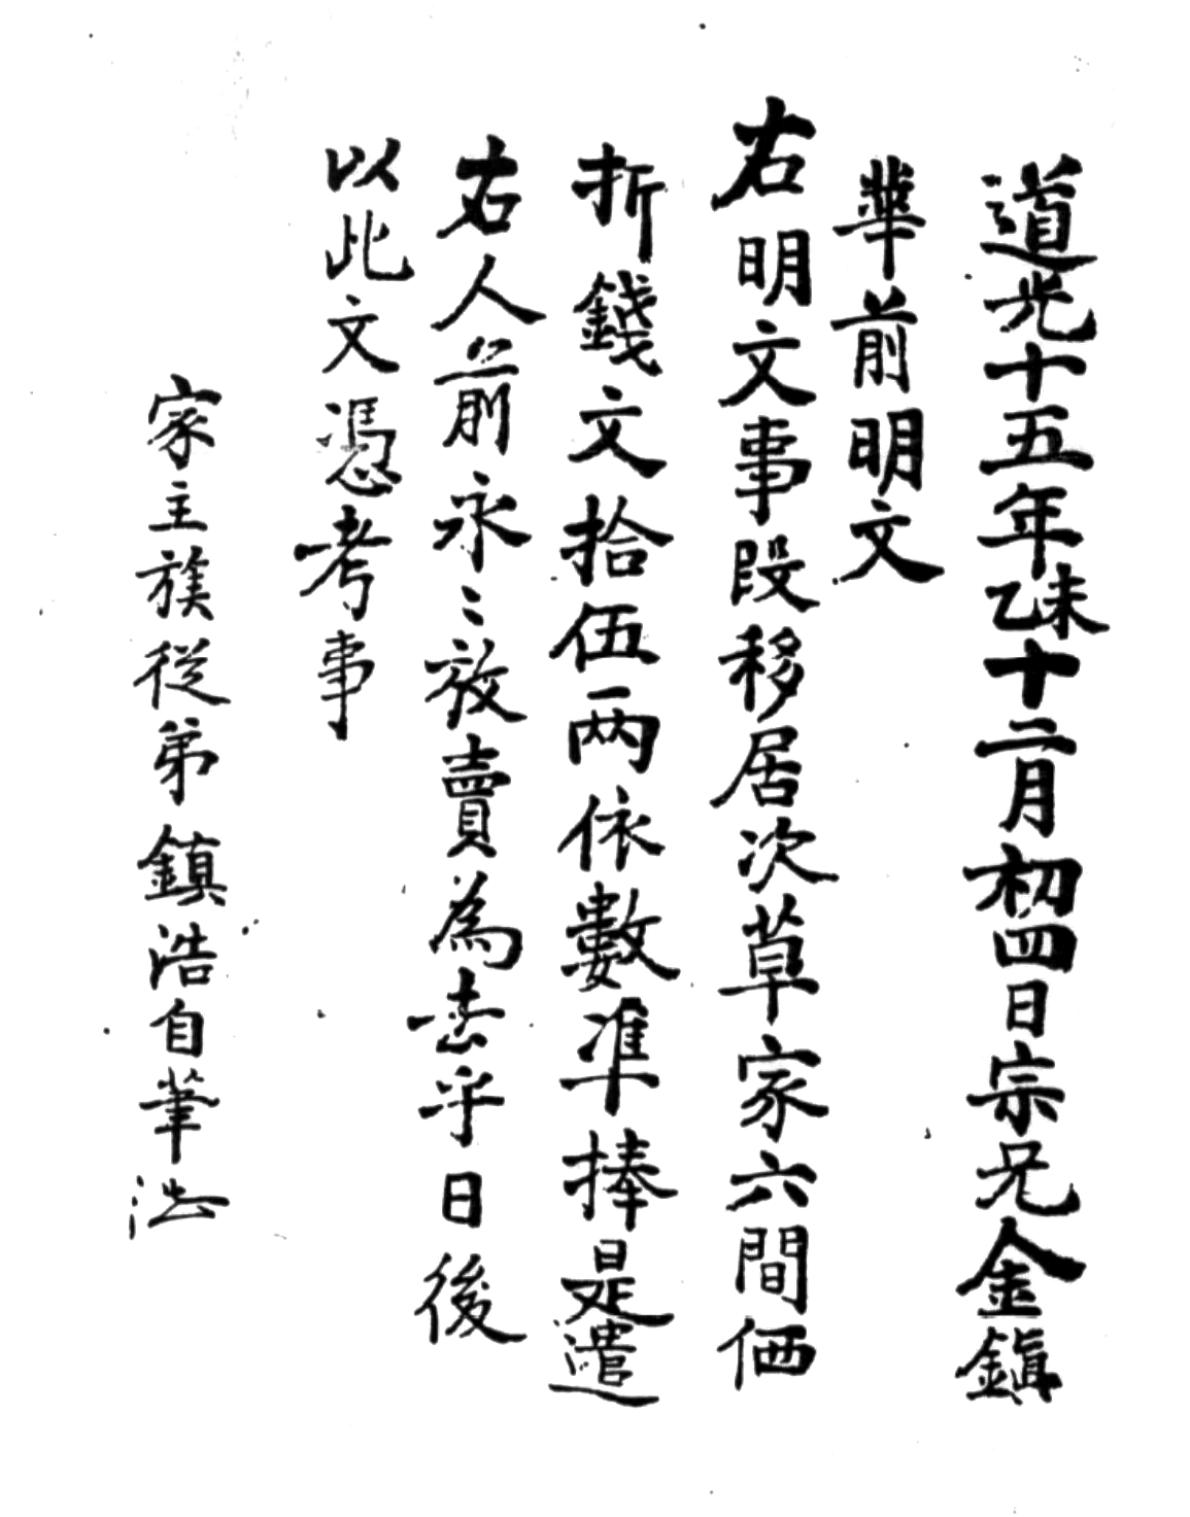 道光十五年乙未十二月初四日宗兄金鎭
華前明文
右明文事段移居次草家六間価
折錢文拾伍両依數准捧是遣
右人前永〻放賣為去乎日後
以此文憑考事
家主族從弟鎮浩自筆